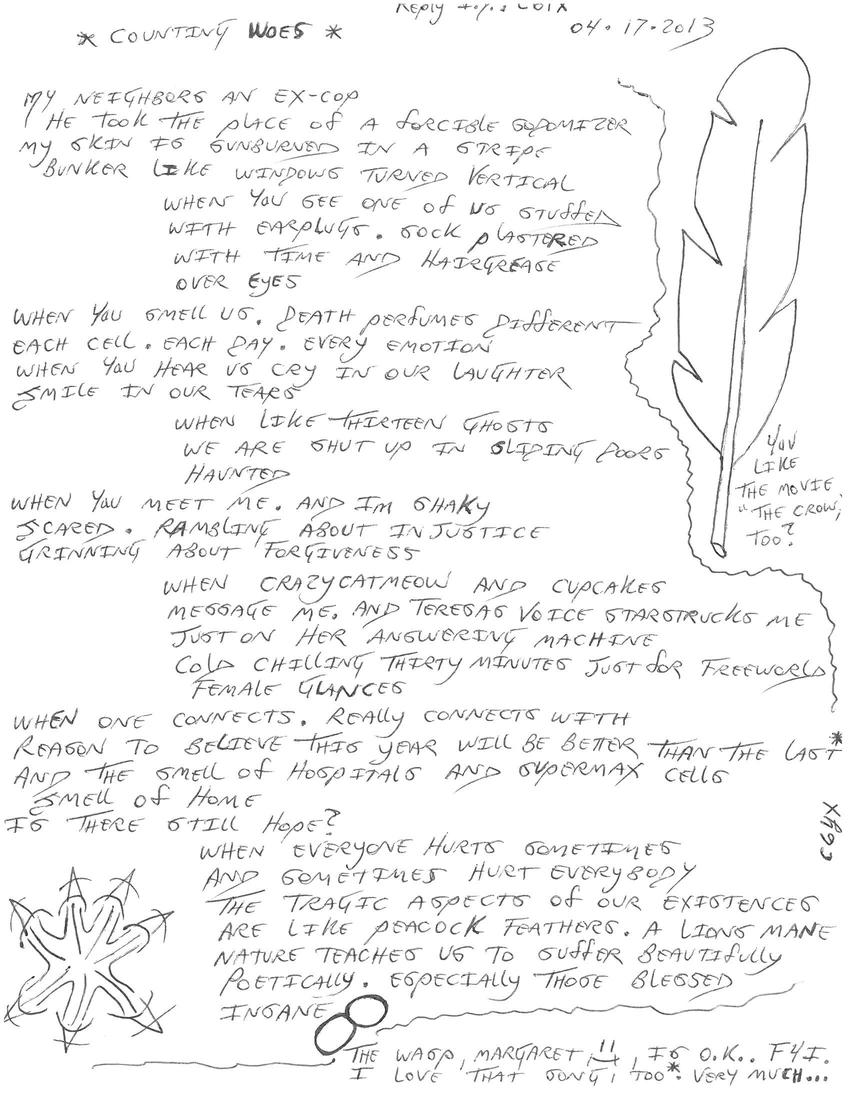 Reply
* COUNTING WOES *
04.17.2013
MY NEIGHBORS AN EX-COP
HE TOOK THE PLACE OF A FORCIBLE SODOMIZER
MY SKIN IS SUNBURNED IN A STRIPE
BUNKER LIKE WINDOWS TURNED VERTICAL
WHEN YOU SEE ONE OF US STUFFED
WITH EARPLUGS. SOCK PLASTERED
WITH TIME AND HAIRGREASE
OVER EYES
WHEN YOU SMELL US. DEATH PERFUMES DIFFERENT
EACH CELL. EACH DAY. EVERY EMOTION
WHEN YOU HEAR US CRY IN OUR LAUGHTER
SMILE IN OUR TEARS
WHEN LIKE THIRTEEN GHOSTS
WE ARE SHUT UP IN SLIDING DOORS
HAUNTED
WHEN YOU MEET ME. AND IM SHAKY
SCARED. RAMBLING ABOUT INJUSTICE
GRINNING ABOUT FORGIVENESS
YOU
LIKE
THE MOVIE,
"THE CROW,
TOO?
WHEN CRAZYCATMEOW AND CUPCAKES
MESSAGE ME. AND TERESAS VOICE STARSTRUCKS ME
JUST ON HER ANSWERING MACHINE
COLD CHILLING THIRTY MINUTES JUST FOR FREEWORLD
FEMALE GLANCES
WHEN ONE CONNECTS. REALLY CONNECTS WITH
REASON TO BELIEVE THIS YEAR WILL BE BETTER THAN THE LAST*
AND THE SMELL OF HOSPITALS AND SUPERMAX CELLS
SMELL OF HOME
IS THERE STILL HOPE?
WHEN EVERYONE HURTS SOMETIMES
AND SOMETIMES HURT EVERYBODY
THE TRAGIC ASPECTS OF OUR EXISTENCES
ARE LIKE PEACOCK FEATHERS. A LIONS MANE
NATURE TEACHES US TO SUFFER BEAUTIFULLY
POETICALLY. ESPECIALLY THOSE BLESSED
INSANE
THE WASP, MARGARET, IS O.K.. FYI.
I LOVE THAT SONG, TOO*. VERY MUCH...